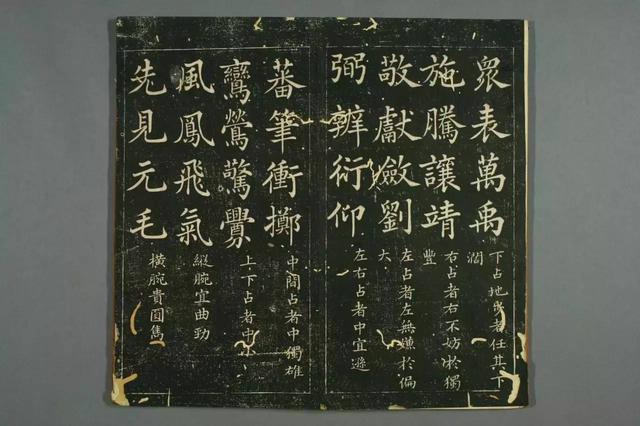 眾表萬禹
下占地步者任其下
濶
施騰讓靖
右占者右不妨於獨
豐
敬獻斂劉
左占者左無嫌於偏
大
弼辨衍仰
左右占者中宜遜
蕃筆衝擲
中間占者中獨雄
鸞鶯驚釁
上下占者中小
風鳳飛氣
縱腕宜曲勁
先見元毛
橫腕貴圓雋